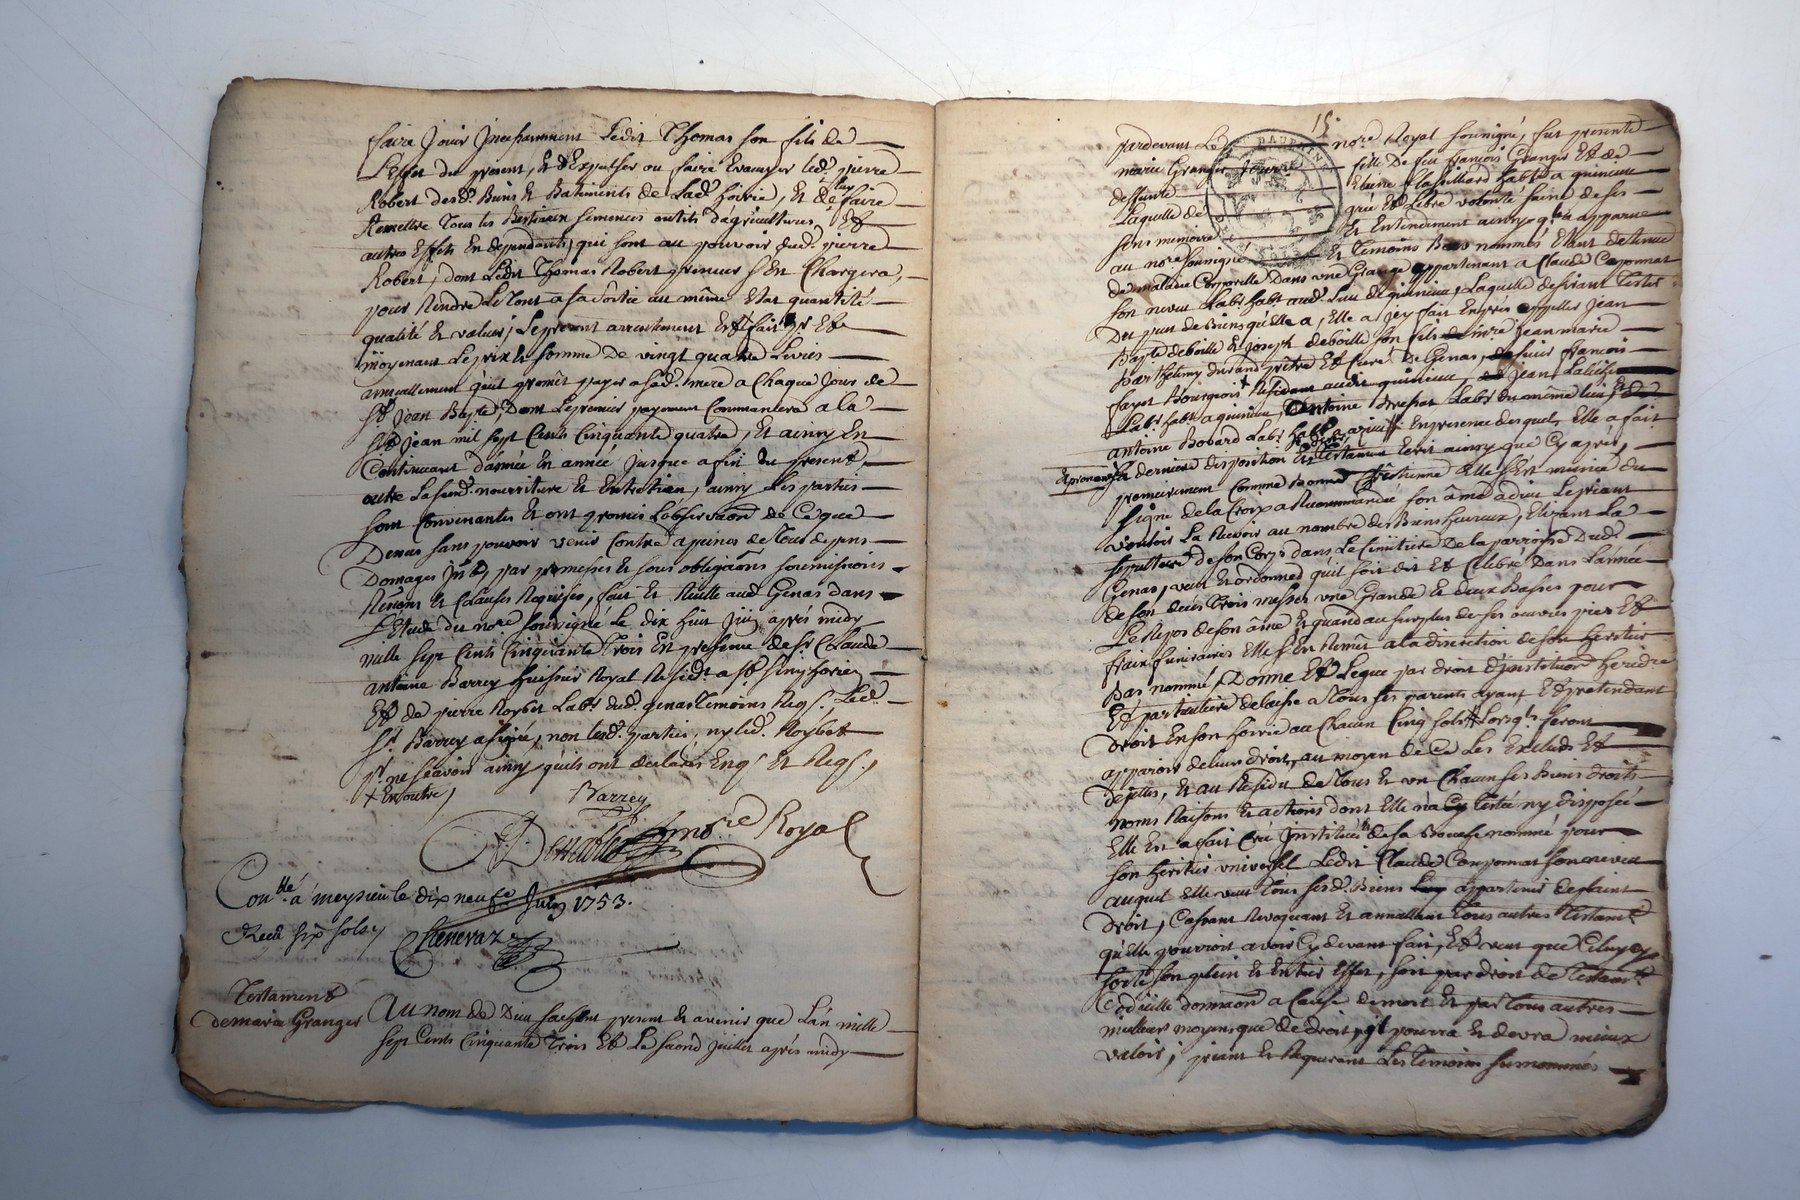 faire Jouir Incessamment Ledit Thomas son fils de
L'Effet du present, Et d'Expulser ou faire Evacuer led. pierre
Robert desd. Biens Et Batiments de Lad. hoirie, Et de luy faire
Remettre Tous les Bestiaux semences outils d'agricultures, Et
autres Effets En dependants, qui sont au pouvoir dud. pierre
Robert, dont Ledit Thomas Robert preneur s'En Chargera,
pour Rendre Le Tout a sa sortie au même Etat quantité
qualité Et valeur; Le present arrentement Est fait
moyenant Le prix Et somme De vingt quatre Livres
annuellement qu'il promet payer a sad. mere a Chaque Jour de
St Jean Bapte, Dont Le premier payement Commencera a la
St Jean mil sept Cents Cinquante quatre, Et ainsy En
Continuant d'année En année Jusque a fin du present,
outre La susd. nourriture Et Entretien, ainsy Les parties
sont Convenantes Et ont promis L'observaon de Ce que
Dessus sans pouvoir venir Contre a peines de Tous depens
Domages par promesses Et sous obligaons soumissions
Renons Et Clauses Requises, fait Et Recitte aud. Genas dans
L'Etude du nore soussigné Le dix huit Juin après midy
mille sept Cents Cinquante Trois En presence de Sr Claude
antoine Barrey huissier Royal Residt a St Simphorien
Et de pierre Roybet Labr dud. genas Temoins Reqs. Led.
Sr. Barrey a signé, non lesd. parties, ny led. Roybet
pr ne scavoir ainsy qu'ils ont declarés Enqs Et Reqs.,
+ En outre,
Barrey
nore Royal
Conllé á meysieu le dix neufe Juin 1753.
Recu six sols
Chenevaz
Testament
de marie Granger
Au nom de Dieu sachent present Et avenir que L'an mille
sept Cents Cinquante Trois Et Le second Juillet après midy
15
pardevant Le nore Royal soussigné, fut presente
marie Granger fille De feu françois Granger Et de
deffunte habte a quincieu
Laquelle de gré Et Libre volonté saine de ses
sens memoire Et Entendement ainsy qu'a apparue
au nore soussigné Et Temoins Bas nommés Etant detenue
de maladie Corporelle Dans une Grange appartenant a Claude
son neveu Labr habt aud. Lieu de quincieu, Laquelle desirant Tester
Du peu de Biens qu'Elle a, Elle a fait appeller Jean
Bapte deboille Et Joseph deboille son fils Jean marie
Barthelemy durand prêtre Et Curé De Genas, françois
fayet Bourgeois Residant audit quincieu Jean
Labr habt a quincieu, Antoine Labr du même lieu
antoine Bobard Labr Enpresence desquels Elle a fait
sa derniere disposition Et Testament Ecrit ainsy que Cy après,
premierement Comme Bonne Chretienne Elle s'Est munie du
signe de la Croix a Recommandée son âme a dieu Le priant
vouloir La Recevoir au nombre des Bienheureux, Elisant La
sepulture de son Corps dans Le Cimitiere De la parroisse Dud.
Genas, veut Et ordonne qu'il soit dit Et Celebré Dans L'année
de son deces Trois messes une Grande Et deux Basses pour
Le Repos de son âme Et quand au surplus de ses œuvres pies Et
fraix funeraires Elle s'En Remet a la direction de son heritier
bas nommé, Donne Et Legue par droit d'institution heredre
Et particuliere delaisse a Tous ses parents ayant Et pretendant
droit En son hoirie au Chacun Cinq sols Lorsqls feront
apparoir de leur droit, au moyen de Ce Les Exclud Et
dejettes, Et au Residu de Tous Et un Chacun ses Biens droits
noms Raisons Et actions dont Elle n'a Cy Testée ny disposée
Elle En a fait Créé Instituée de sa Bouche nommé pour
son heritier universel Ledit Claude son neveu
auquel Elle veut Tous sesd. Biens appartenir de plaint
droit, Cassant Revoquant Et annullant Tous autres Testamt
qu'Elle pourroit avoir Cy devant fait, Et veut que Celuycy
sorte son plein Et Entier Effet, soit par droit de Testamt
Codicille donnaon a Cause de mort Et par Tous autres
meilleurs moyens que de droit il pourra Et devra mieux
valoir; priant Et Requerant Les Temoins surnommés